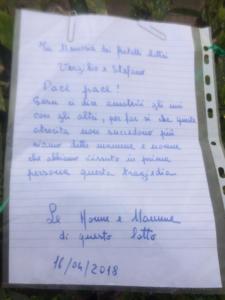 In Memoria dei fratelli lotta
Virgilio e Stefano
Pace pace!
con gli altri, per far si che queste
atrocita non succedono più
siamo delle mamme e nonne
che abbiamo vissuto in prima
persona questa tragedia.
Le Nonne e Mamme
di questo lotto
16/04/2018